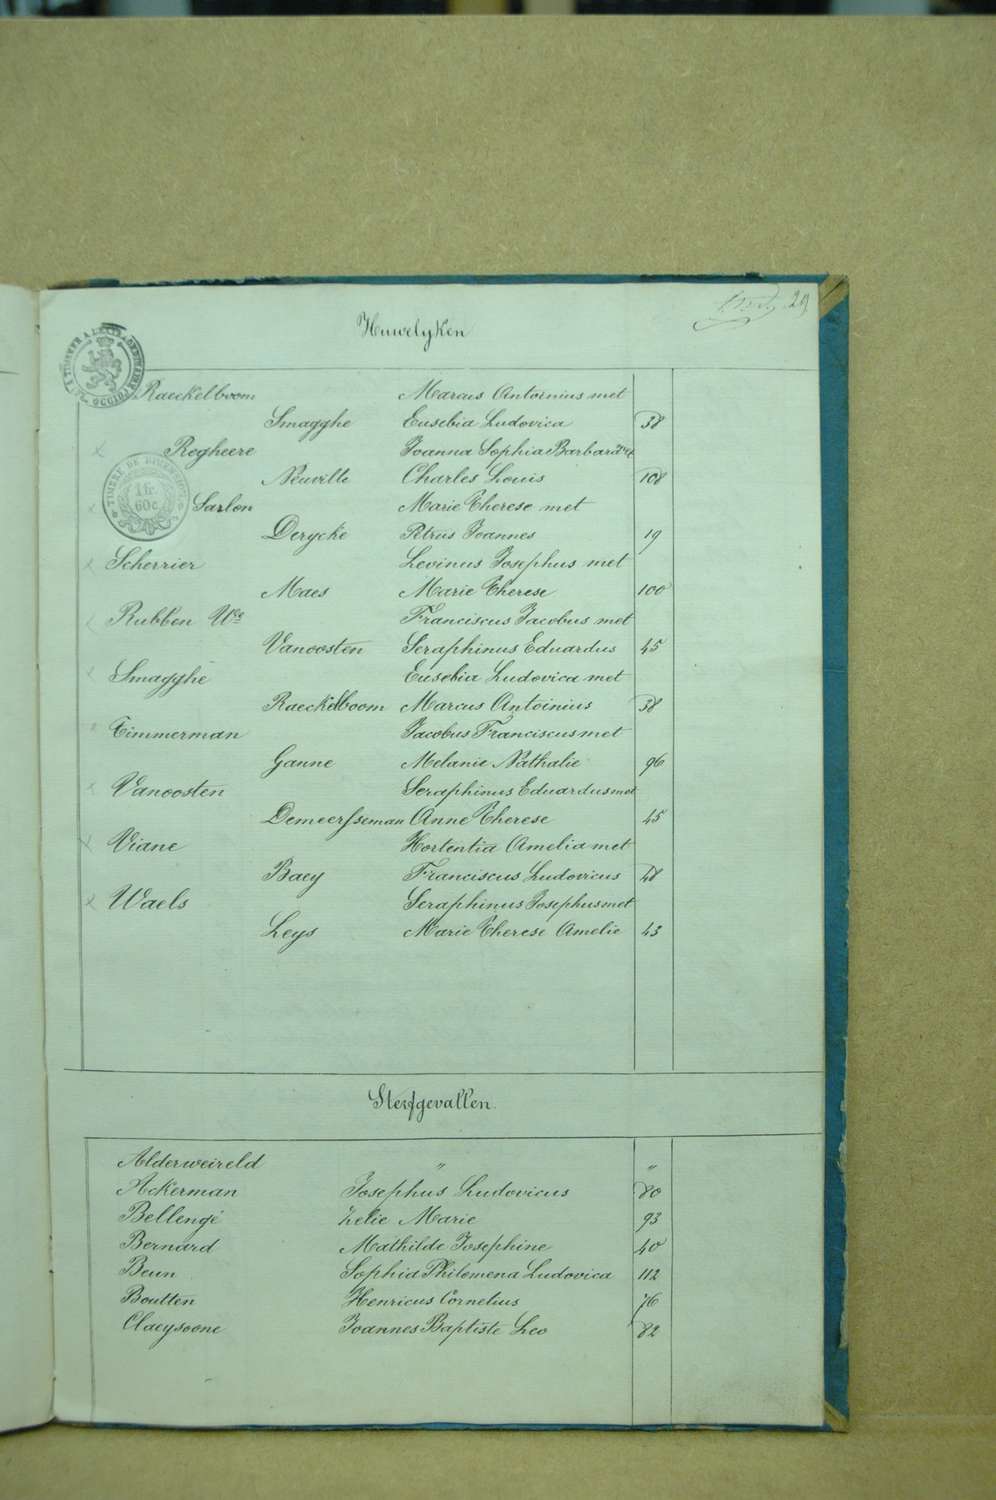 29
Huwelyken
Raeckelboom Marcus Antoinius met
Smagghe Eusebia Ludovica 38
x Rogheere Joanna Sophia Barbara met
Neuville Charles Louis 108
TIMBRE DE DIMENSION
1 fr
60 c
x Sarlon Marie Therese met
Derycke Petrus Joannes 19
x Scherrier Levinus Josephus met
Maes Marie Therese 100
x Rubben Wee Franciscus Jacobus met
Vanoosten Seraphinus Eduardus 45
x Smagghe Eusebia Ludovica met
Raeckelboom Marcus Antoinius 38
x Timmerman Jacobus Franciscus met
Ganne Melanie Nathalie 96
x Vanoosten Seraphinus Eduardus met
Demeersseman Anne Therese 45
x Viane Hortentia Amelia met
Baey Franciscus Ludovicus 48
x Waels Seraphinus Josephus met
Leys Marie Therese Amelie 43
Sterfgevallen.
Alderweireld " "
Ackerman Josephus Ludovicus 80
Bellengé Zelie Marie 93
Bernard Mathilde Josephine 40
Beun Sophia Philomena Ludovica 112
Boutten Henricus Cornelius 76
Claeysoone Joannes Baptiste Leo 82